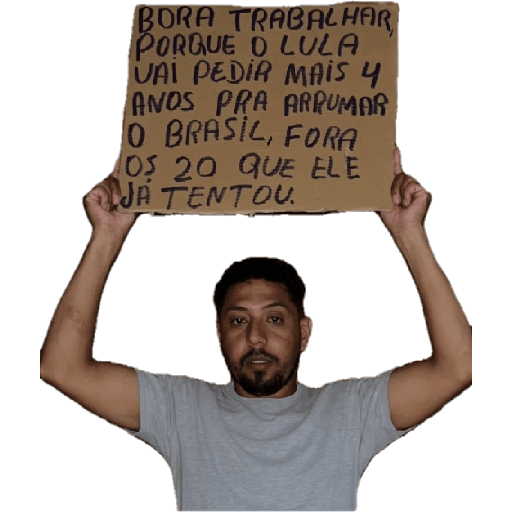 BORA TRABALHAR,
PORQUE O LULA
VAI PEDIR MAIS 4
ANOS PRA ARRUMAR
O BRASIL, FORA
OS 20 QUE ELE
JÁ TENTOU.